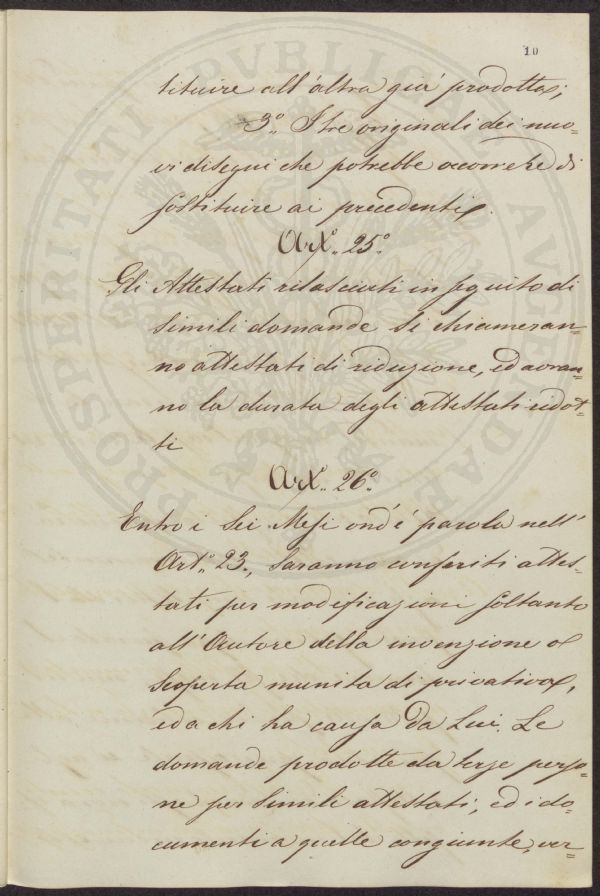 10
tituire all'altra già prodotta;
3.° I tre originali dei nuo=
vi disegni che potrebbe occorrere di
sostituire ai precedenti.
Art.° 25.°
Gli Attestati rilasciati in seguito di
simili domande si chiameran=
no attestati di riduzione, ed avran=
no la durata degli attestati ridot=
ti
Art. 26.°
Entro i Sei Mesi ond'è parola nell'
Art.° 23., Saranno conferiti attes=
tati per modificazioni soltanto
all'Autore della invenzione o
Scoperta munita di privativa,
ed a chi ha causa da Lui. Le
domande prodotte da terze perso=
ne per Simili attestati, ed i do=
cumenti a quelle congiunte, ver=
PROSPERITATI PVBLICAE AVGENDAE